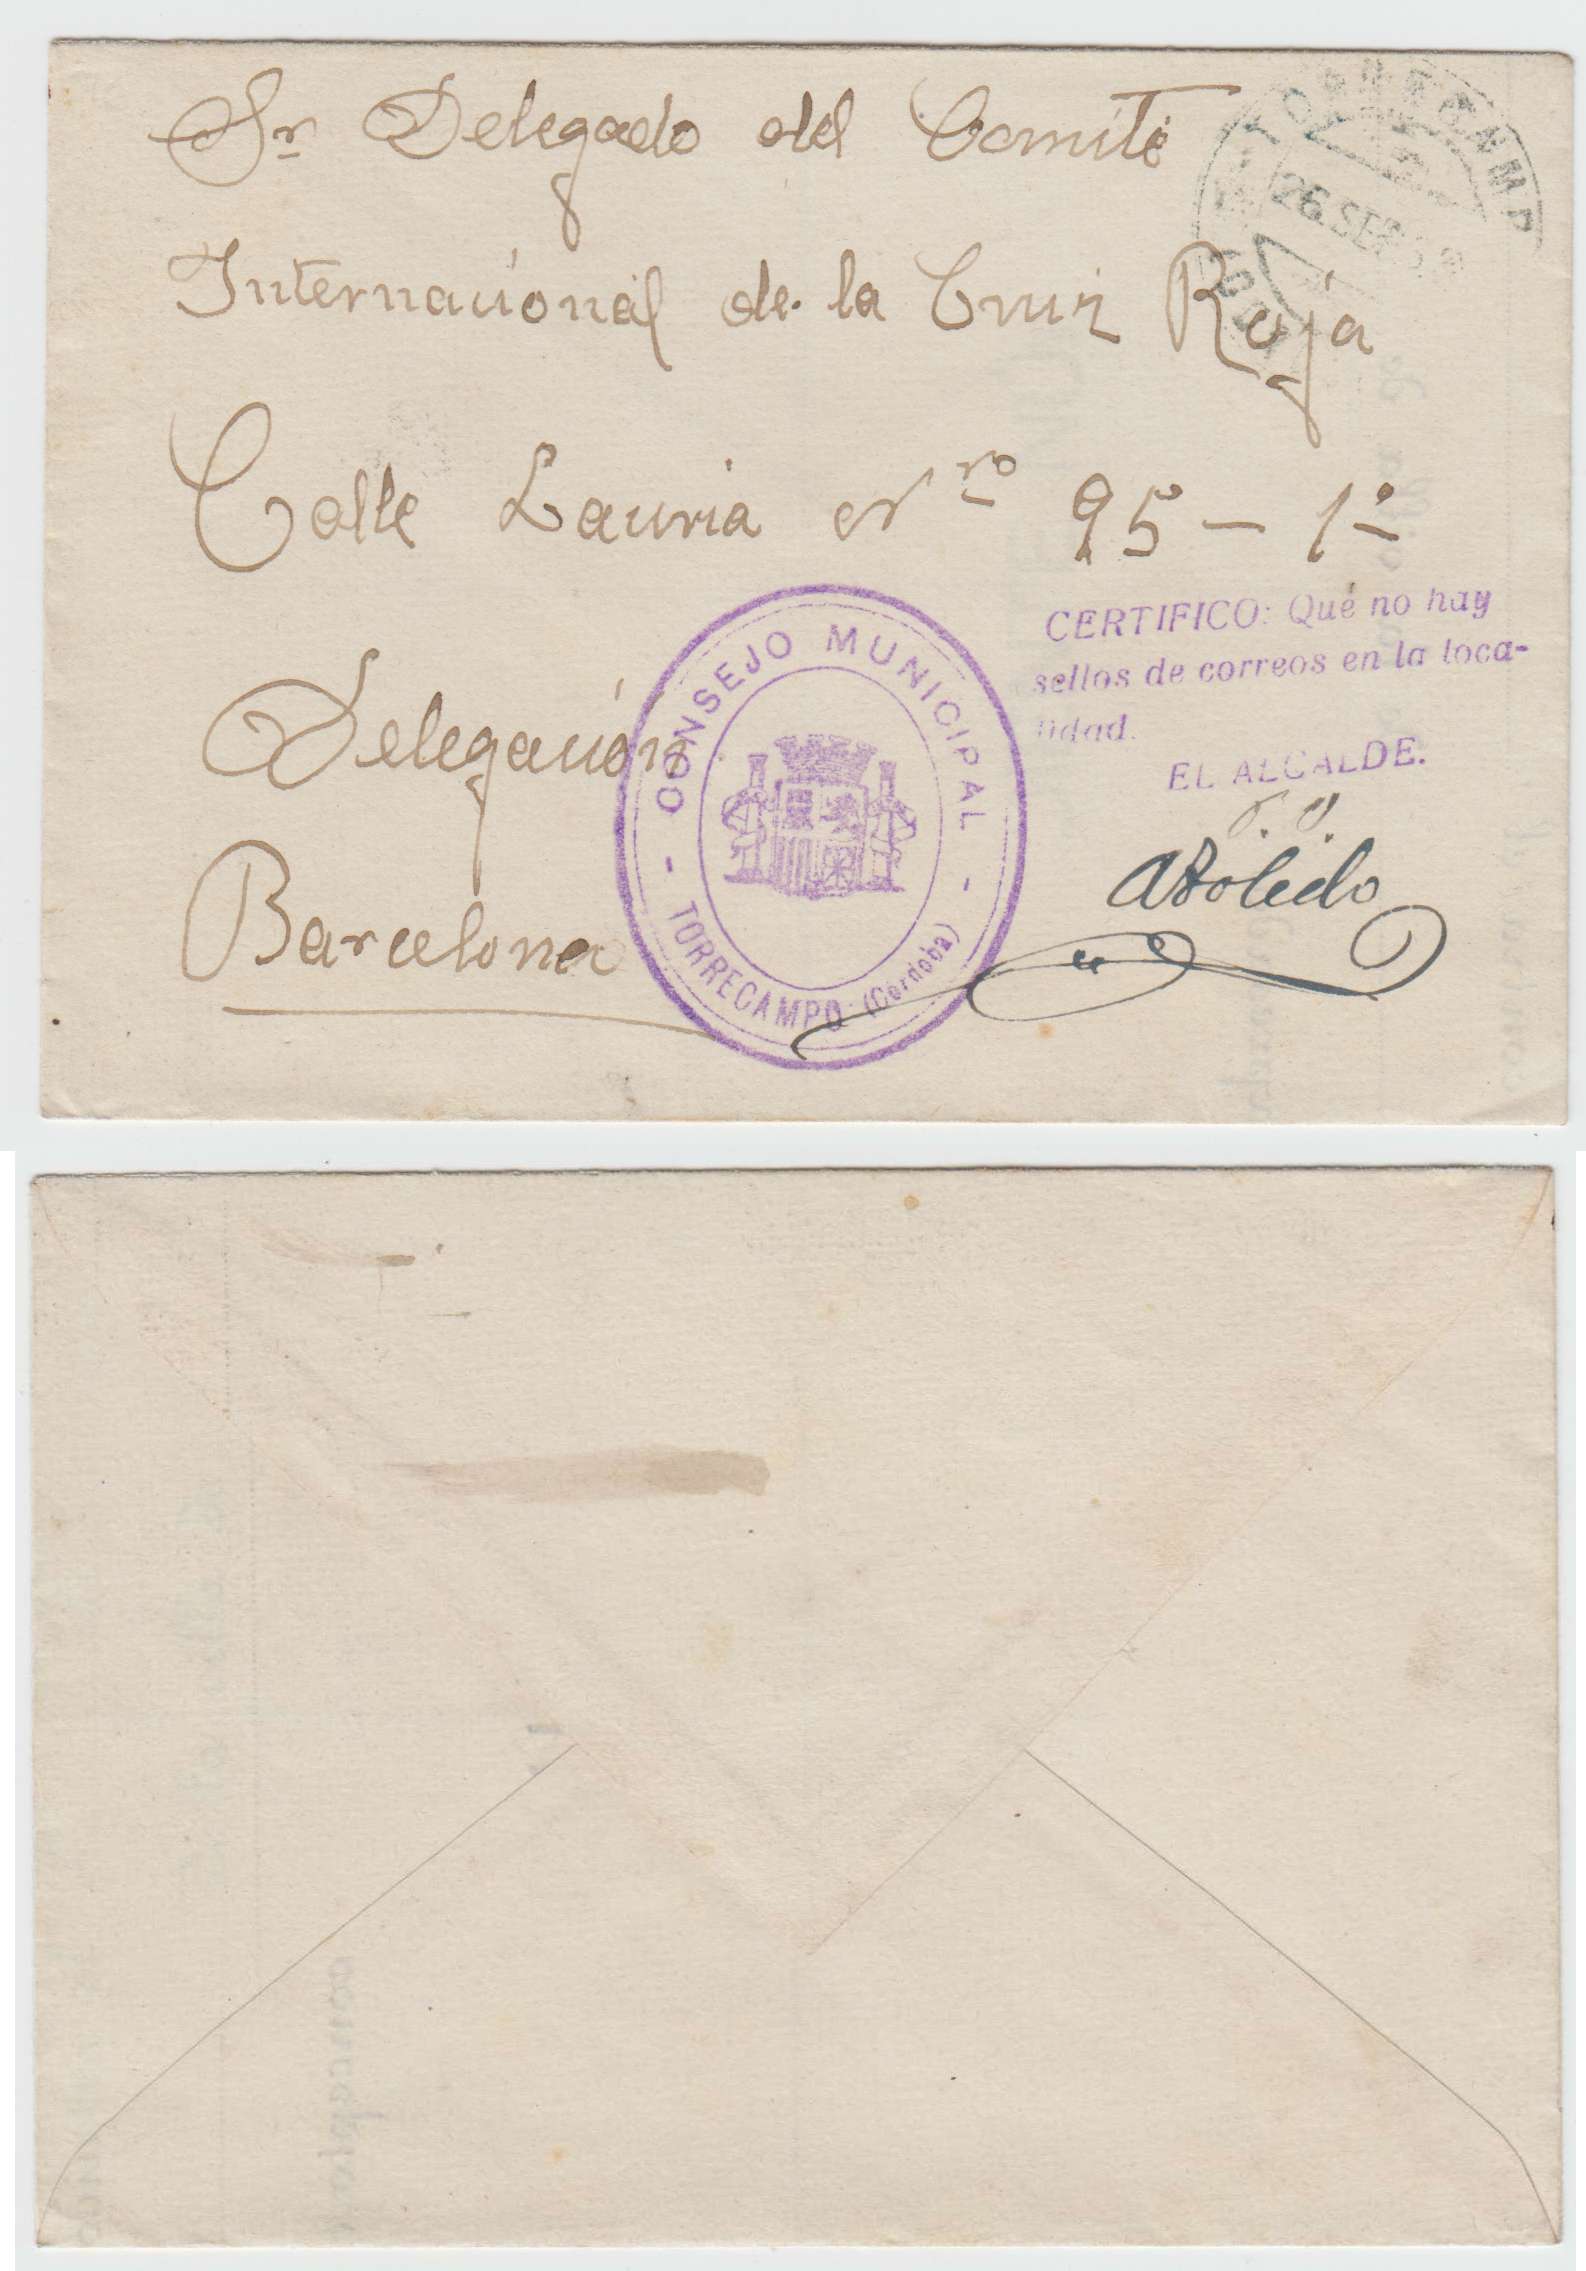 Sr Delegado del Comité
Internacional de la Cruz Roja
Calle Lauria Nro 95 - 1º
Delegación
Barcelona
TORRECAMP
26 SEP
CONSEJO MUNICIPAL
- TORRECAMPO (Córdoba) -
CERTIFICO: Que no hay
sellos de correos en la loca-
lidad.
EL ALCALDE.